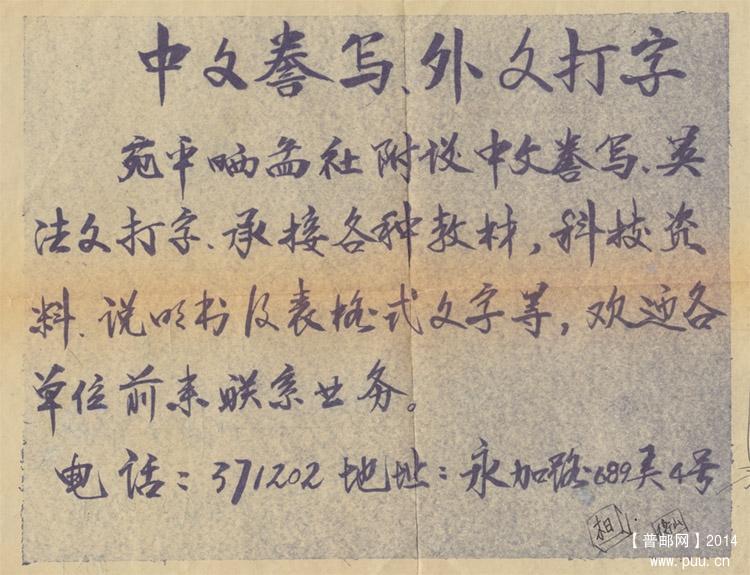 中文誊写、外文打字
宛平晒图社附设中文誊写、英
法文打字、承接各种教材，科技资
料、说明书及表格式文字等，欢迎各
单位前来联系业务。
电话：371202 地址：永加路689弄4号
【普邮网】2014
www.puu.cn